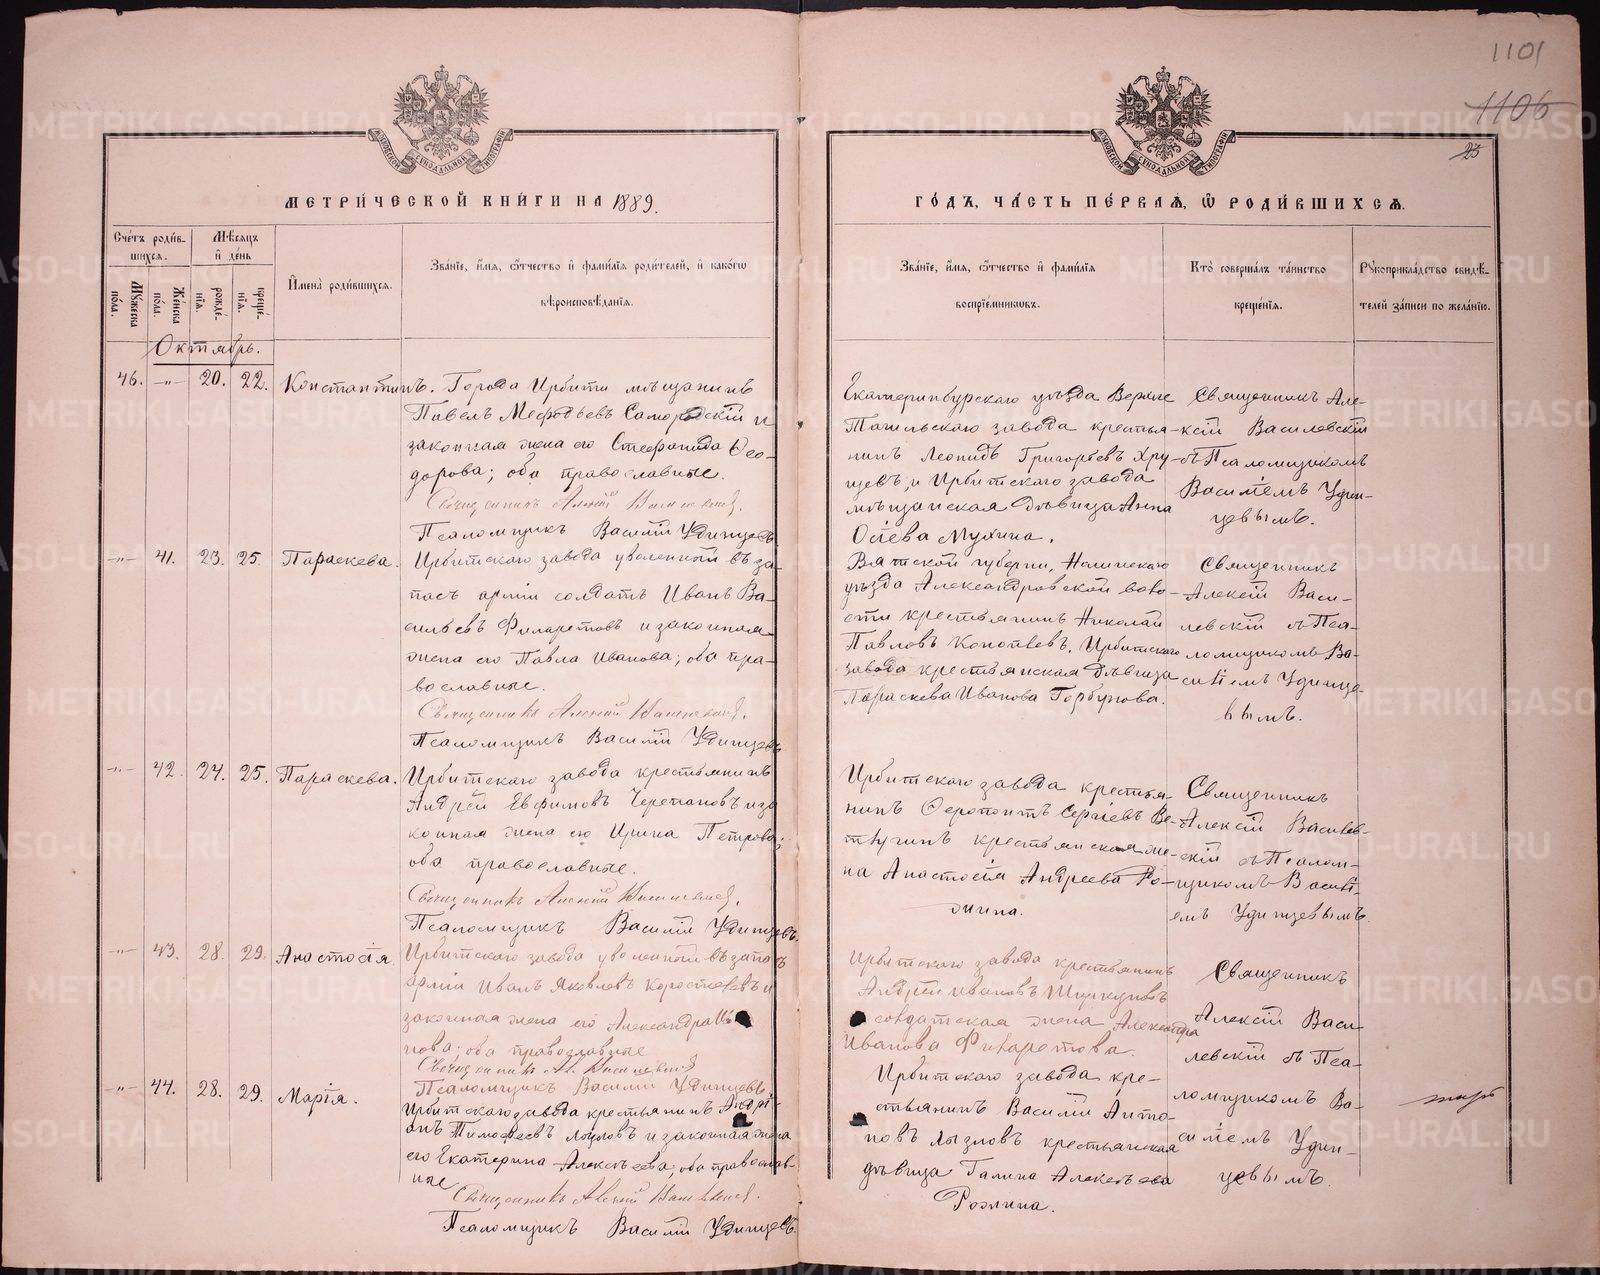 1101
1106
23
МЕТРИ́ЧЕСКОЙ КНИ́ГИ НА 1889.
ГО́ДЪ, ЧА́СТЬ ПЕ́РВАѦ, Ѡ҆ РОДИ́ВШИХСѦ.
Сче́тъ роди́в-
шихсѧ.
Мꙋ́жеска по́ла.
Же́нска по́ла.
Мѣ́сѧцъ и҆ де́нь
рожде́-нїѧ.
креще́-нїѧ.
И҆мена̀ роди́вшихсѧ.
Зва́нїе, и҆́мѧ, ѻ҆́тчество и҆ фами́лїѧ роди́телей, и҆ како́гѡ
вѣроисповѣ́данїѧ.
Зва́нїе, и҆́мѧ, ѻ҆́тчество и҆ фами́лїѧ
воспрїе́мникѡвъ.
Кто̀ соверша́лъ та́инство
креще́нїѧ.
Рꙋкоприкла́дство свидѣ́-
телей за́писи по жела́нїю.
Октябрь.
46. -"- 20. 22. Константинъ. Города Ирбити мѣщанинъ
Павелъ Меѳодьевъ и
законная жена его Стефанида Ѳео-
дорова; оба православные.
Священникъ Алексій Василевскій.
Псаломщикъ Василій Удинцевъ
Екатеринбурскаго уѣзда Верхне
Тагильскаго завода крестья-
нинъ Леонидъ Григорьевъ Хру-
щевъ, и Ирбитскаго завода
мѣщанская дѣвица Анна
Осіева Мухина.
Священникъ Але-
ксій Василевскій
съ Псаломщикомъ
Василіемъ Удин-
цевымъ.
-"- 41. 23. 25. Параскева. Ирбитскаго завода уволенный въ за-
пасъ арміи солдатъ Иванъ Ва-
сильевъ Филаретовъ и законная
жена его Павла Иванова; оба пра-
вославные.
Священникъ Алексій Василевскій.
Псаломщикъ Василій Удинцевъ
Вятской губерніи, Нолинскаго
уѣзда Александровской воло-
сти крестьянинъ Николай
Павловъ Коноваловъ. Ирбитскаго
завода крестьянская дѣвица
Параскева Иванова Горбунова.
Священникъ
Алексій Васи-
левскій съ Пса-
ломщикомъ Ва-
силіемъ Удинце-
вымъ.
-"- 42. 24. 25. Параскева. Ирбитскаго завода крестьянинъ
Андрей Евфимовъ Черепановъ и за
конная жена его Ирина Петрова;
оба православные.
Священникъ Алексій Василевскій.
Псаломщикъ Василій Удинцевъ.
Ирбитскаго завода крестья-
нинъ Ѳеропонтъ Сергіевъ Ве-
тлугинъ крестьянская же-
на Анастасія Андреева Ро-
жина.
Священникъ
Алексій Василев-
скій съ Псалом-
щикомъ Василі-
емъ Удинцевымъ.
-"- 43. 28. 29. Анастасія. Ирбитскаго завода уволенный въ запасъ
арміи Иванъ Яковлевъ Коростелевъ и
законная жена его Александра Ив
нова; оба православные
Священникъ Ал. Василевскій
Псаломщикъ Василій Удинцевъ.
Ирбитскаго завода крестьянинъ
Андрей Ивановъ Ширкуновъ
солдатская жена Александра
Иванова Филаретова.
Священникъ
Алексій Васи-
левскій съ Пса-
ломщикомъ Ва-
силіемъ Удин-
цевымъ.
-"- 44. 28. 29. Марія.
Ирбитскаго завода крестьянинъ Андрі-
анъ Тимофеевъ Лызловъ и законная жена
его Екатерина Алексѣева; оба православ-
ные
Священникъ Алексій Василевскій.
Псаломщикъ Василій Удинцевъ.
Ирбитскаго завода кре-
стьянинъ Василій Анто-
новъ Лызловъ крестьянская
дѣвица Галина Алексѣева
Рожина.